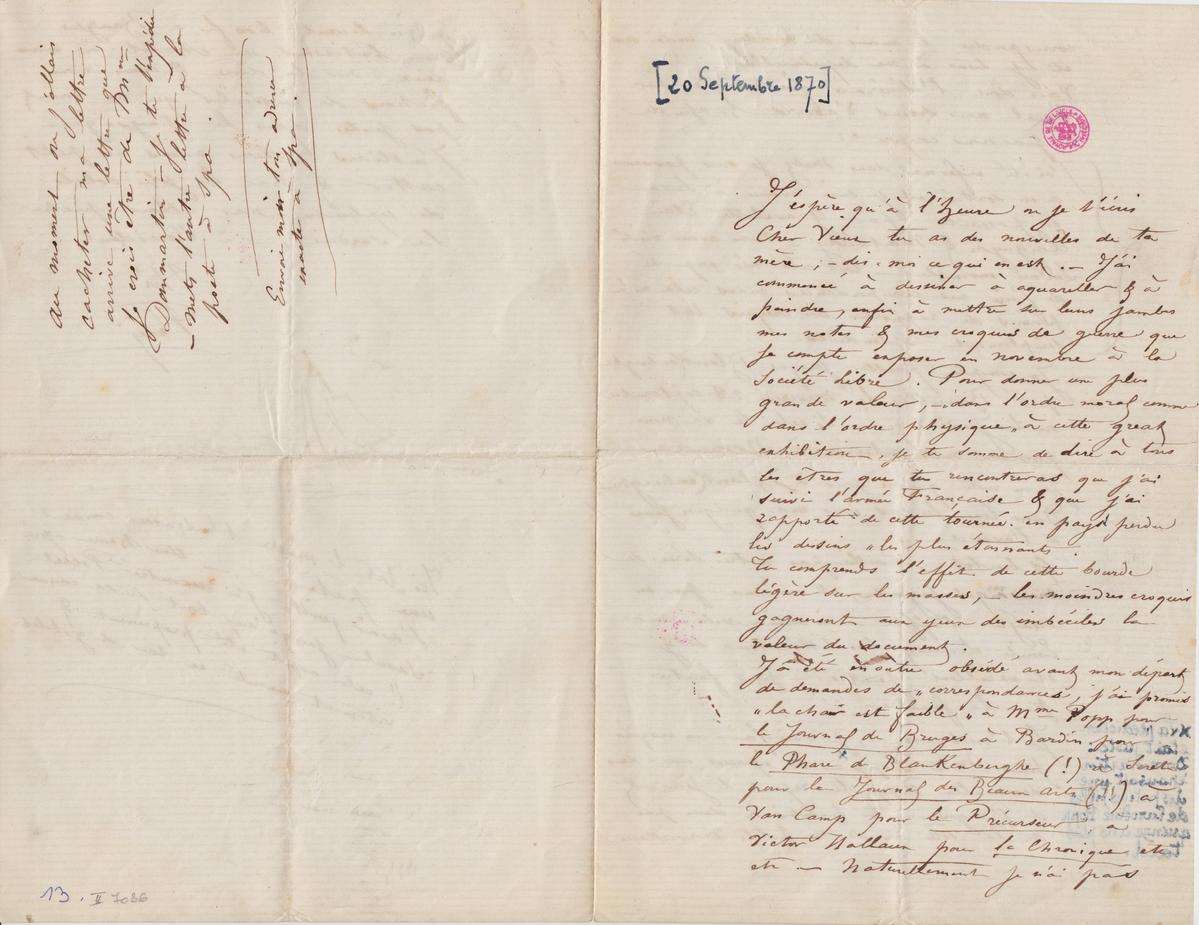 [20 Septembre 1870]
J'espère qu'à l'heure où je t'écris
Cher Vieux tu as des nouvelles de ta
mère, – dis-moi ce qui en est. — J'ai
commencé à dessiner à aquareller & à
peindre, enfin à mettre sur leurs jambes
mes notes & mes croquis de guerre que
je compte exposer en novembre à la
Société Libre. Pour donner une plus
grande valeur, – dans l'ordre moral comme
dans l'ordre physique, à cette great
exhibition, je te somme de dire à tous
les êtres que tu rencontreras que j'ai
suivi l'armée Française & que j'ai
rapporté de cette tournée en pays perdu
les dessins "les plus étonnants.
Tu comprends l'effet de cette bourde
légère sur les masses, – les moindres croquis
gagneront aux yeux des imbéciles la
valeur du document.
J'ai été en outre obsédé avant mon départ
de demandes de "correspondances, j'ai promis
"la chair est faible" à Mme Popp pour
le Journal de Bruges à Bardin pour
le Phare de Blankenberghe (!) à
pour le Journal des Beaux arts (!!) à
Van Camp pour le Précurseur, à
Victor Hallaux pour la Chronique etc
etc — Naturellement je n'ai pas
au moment où j'allais
cacheter ma lettre
arrive une lettre que
je crois être de Mme
Dommartin – Je te l'expédie
– mets l'autre lettre à la
poste à Spa.
Envoie moi ton adresse
exacte à Spa.
13. II 7036